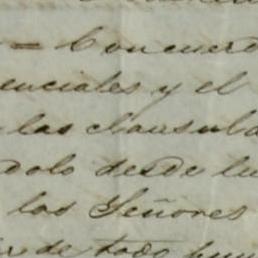 = Concuerd
enciales y el
las clausula
dolo desde lu
los Señores
de todo